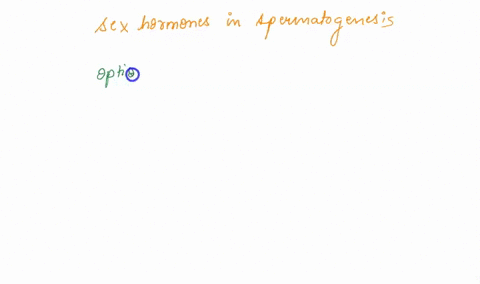 sex hormones in spermatogenesis
optio